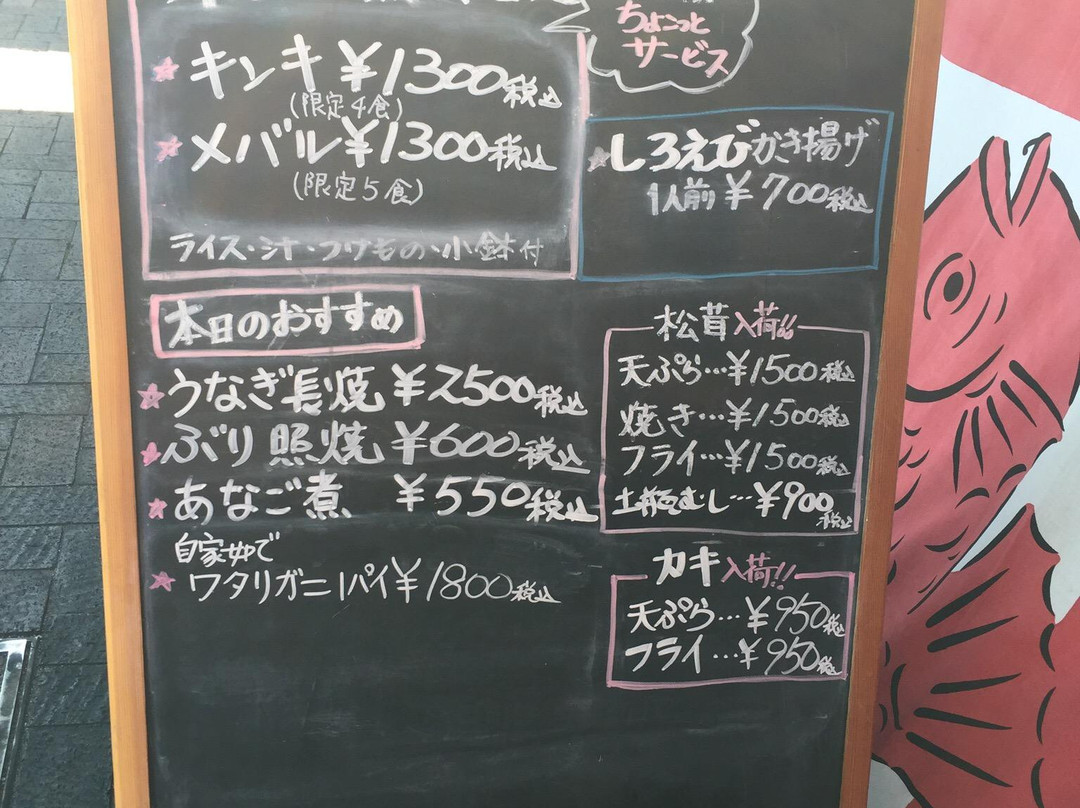 キンキ ¥1300税込
(限定4食)
メバル ¥1300税込
(限定5食)
ライス・汁・つけもの・小鉢付
ちょこっと
サービス
しろえびかき揚げ
1人前 ¥700税込
本日のおすすめ
うなぎ長焼 ¥2500税込
ぶり照焼 ¥600税込
あなご煮 ¥550税込
自家ゆで
ワタリガニ1パイ ¥1800税込
松茸入荷!!
天ぷら…¥1500税込
焼き…¥1500税込
フライ…¥1500税込
土瓶むし…¥900
税込
カキ入荷!!
天ぷら…¥950税込
フライ…¥950税込